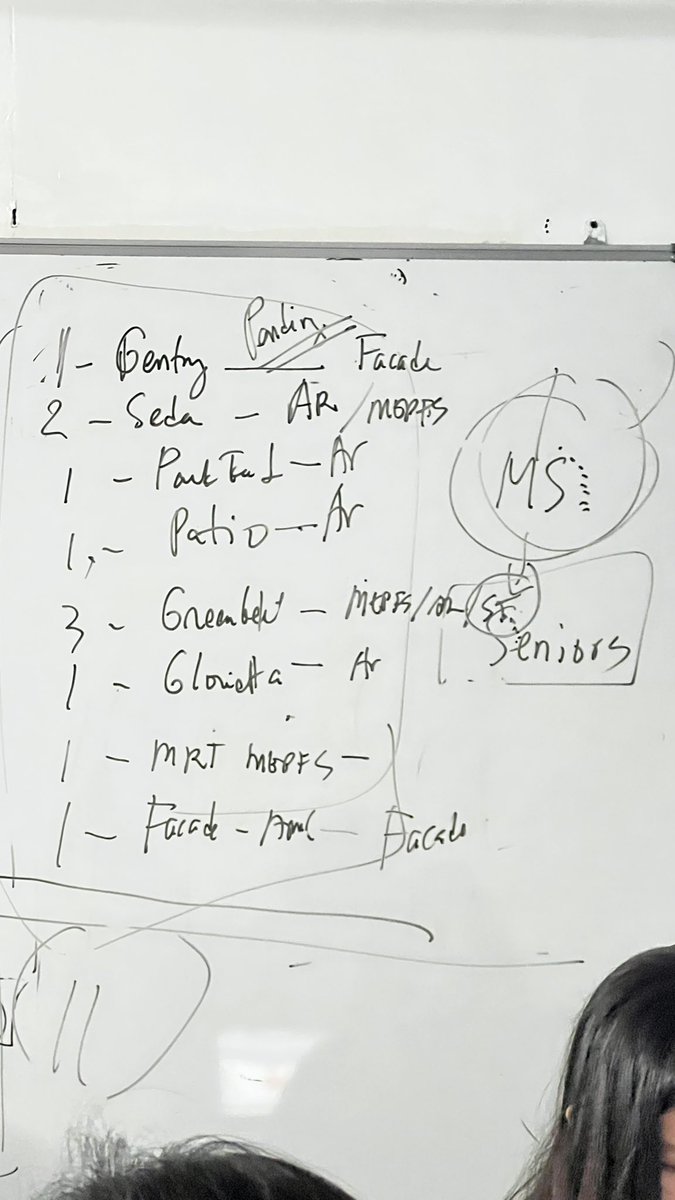 Pending
1 - Gentry Facade
2 - Seda - AR / MEPFS
1 - - Ar
1 - Patio - Ar
3 - Greenbelt - MEPFS/AR/ST.
1 - Glorietta - Ar
1 - MRT MEPFS -
1 - Facade - - Facade
MS
Seniors
11